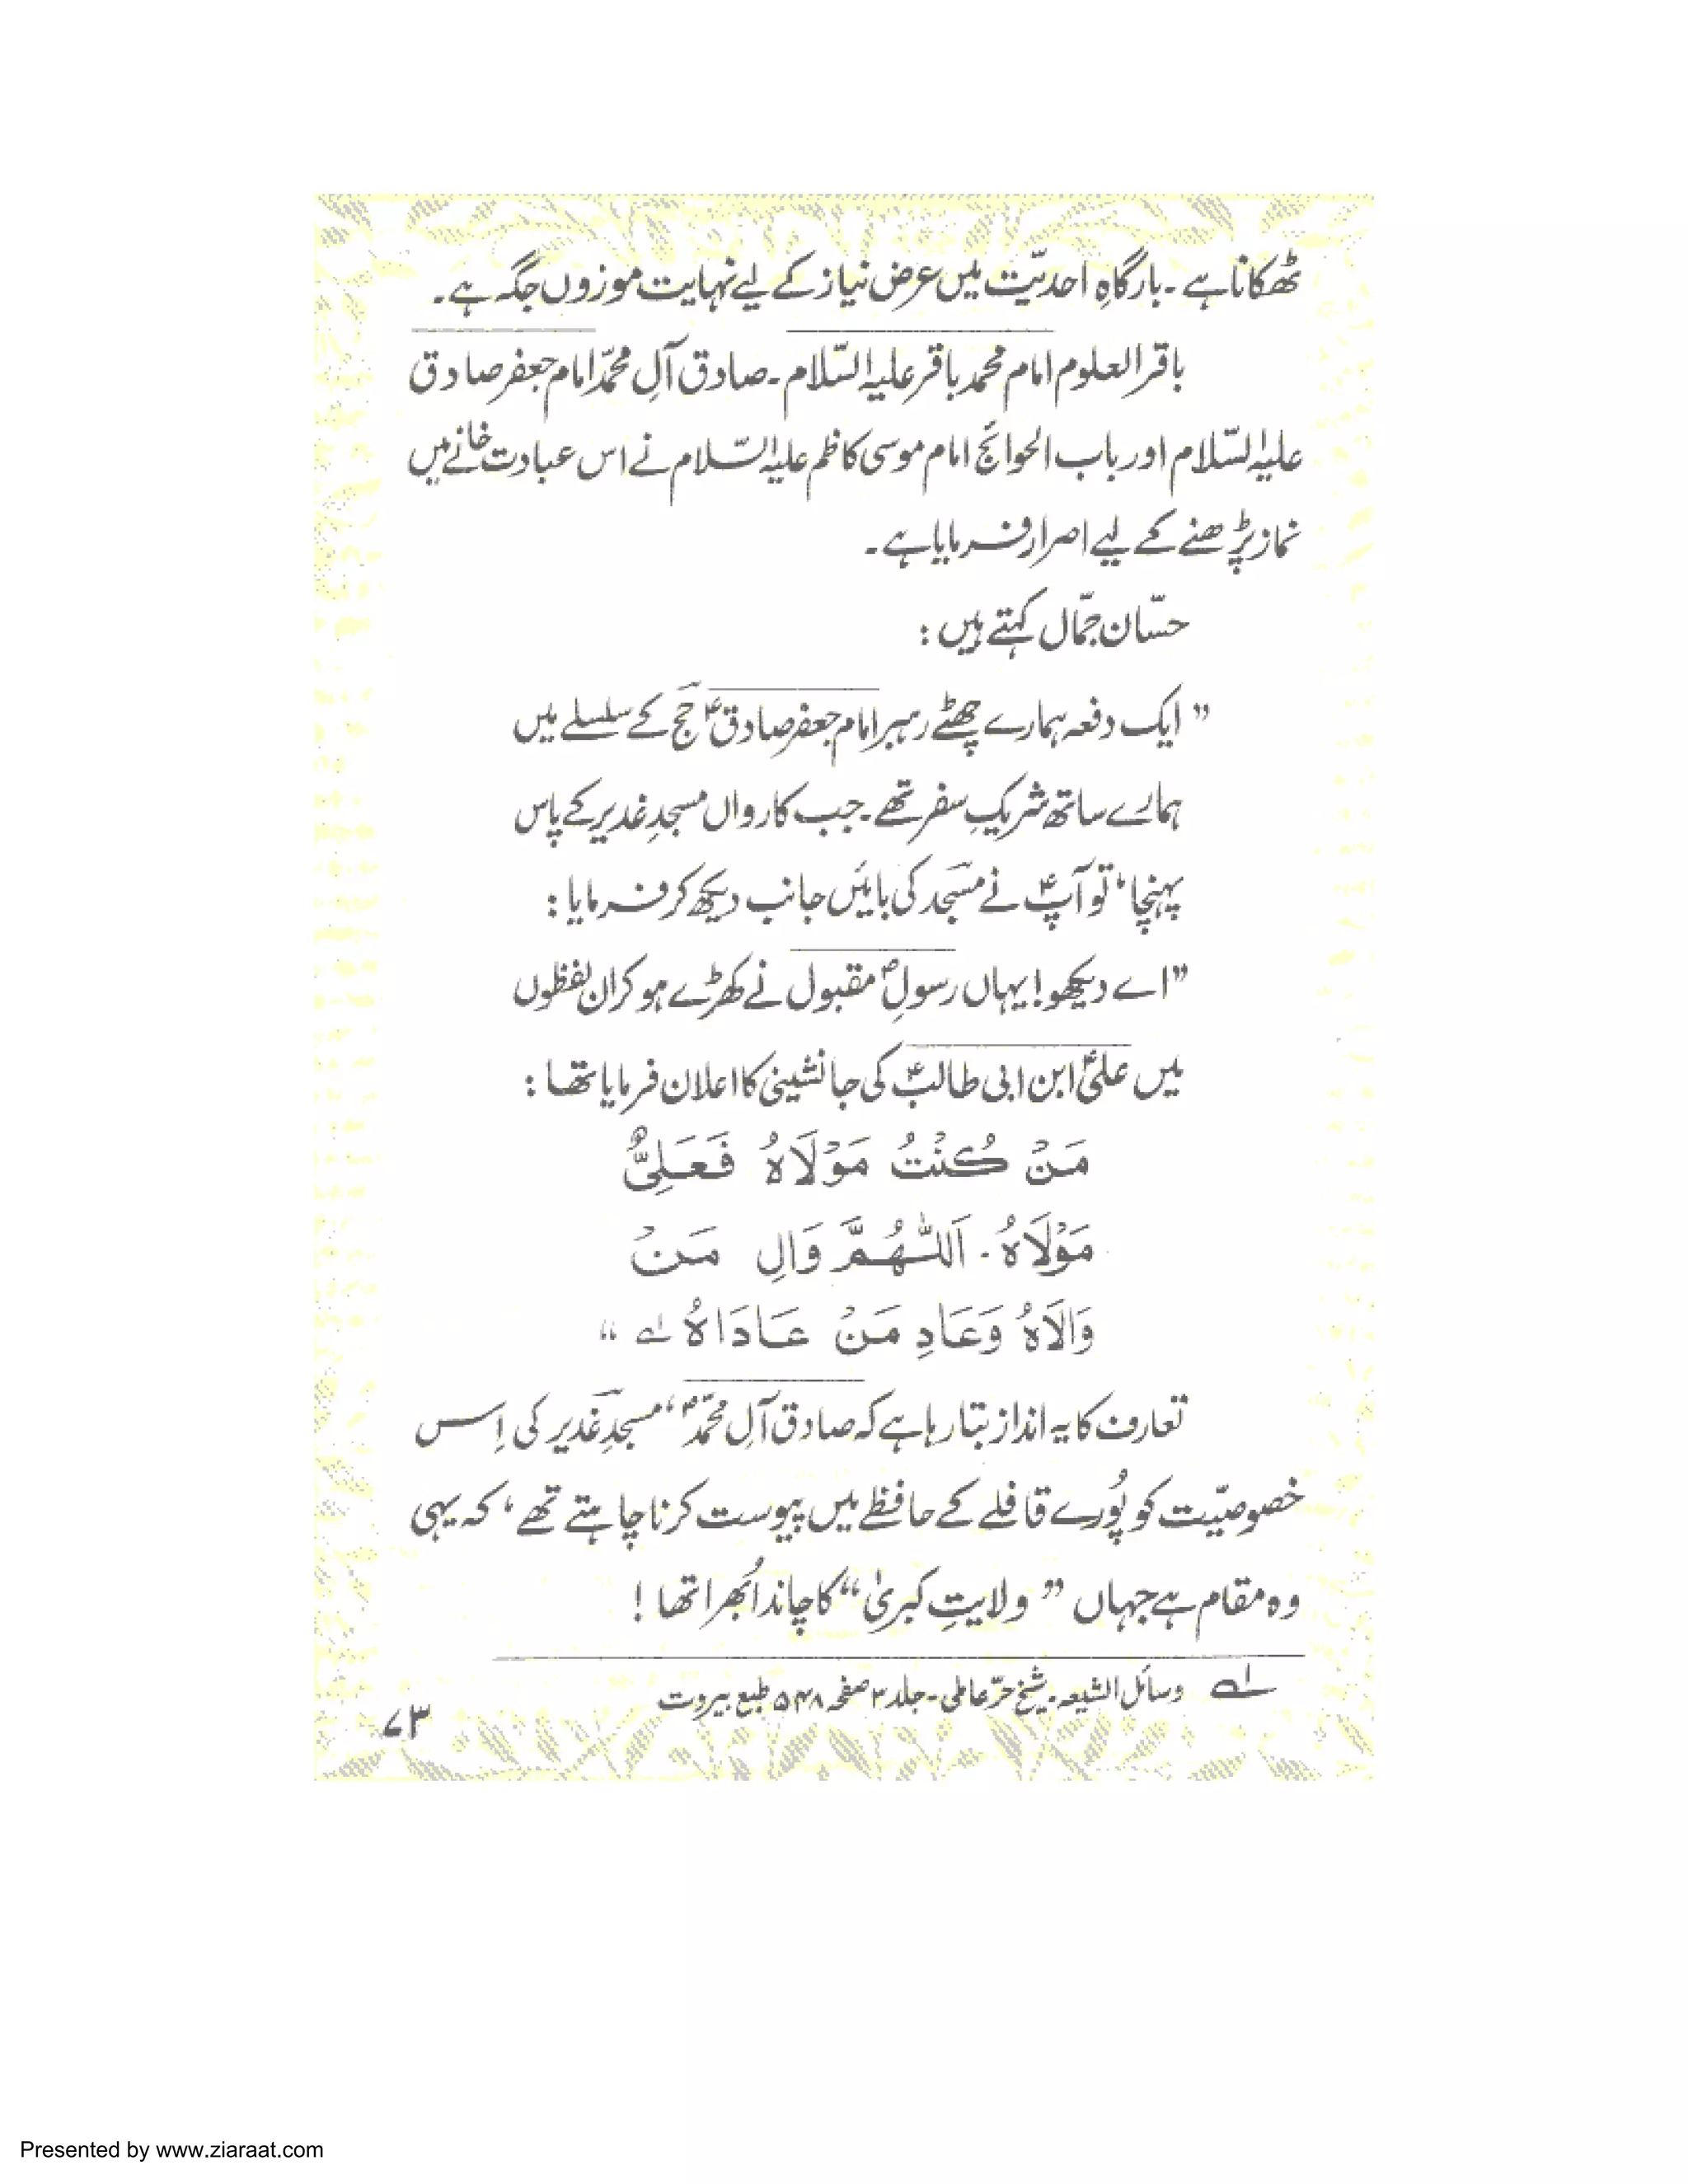 ٹھکانا ہے۔ بارگاہِ احدیّت میں عرض نیاز کے لیے نہایت موزوں جگہ ہے۔
باقر العلوم امام محمد باقر علیہ السّلام۔ صادق آلِ محمّد امام جعفر صادق
علیہ السّلام اور باب الحوائج امام موسی کاظم علیہ السّلام نے اس عبادت خانے میں
نماز پڑھنے کے لیے اصرار فرمایا ہے۔
حسّان جمّال کہتے ہیں :
” ایک دفعہ ہمارے چھٹے رہبر امام جعفر صادقؑ حج کے سلسلے میں
ہمارے ساتھ شریکِ سفر تھے۔ جب کارواں مسجدِ غدیر کے پاس
پہنچا، تو آپؑ نے مسجد کی بائیں جانب دیکھ کر فرمایا :
”اے دیکھو! یہاں رسولِؐ مقبول نے کھڑے ہو کر ان لفظوں
میں علیؑ ابن ابی طالبؑ کی جانشینی کا اعلان فرمایا تھا :
مَنْ كُنْتُ مَوْلَاهُ فَعَلِیٌّ
مَوْلَاهُ۔ اَللّٰهُمَّ وَالِ مَنْ
وَالَاهُ وَعَادِ مَنْ عَادَاهُ لے “
تعارف کا یہ انداز بتا رہا ہے کہ صادق آلِ محمّدؐ، مسجدِ غدیر کی اِس
خصوصیّت کو پُورے قافلے کے حافظے میں پیوست کرنا چاہتے تھے، کہ یہی
وہ مقام ہے جہاں ” ولایتِ کبریٰ “ کا چاند اُبھرا تھا !
لے وسائل الشیعہ۔ شیخ حرّ عاملی۔ جلد ۳ صفحہ ۵۴۸ طبع بیروت
۷۳
Presented by www.ziaraat.com